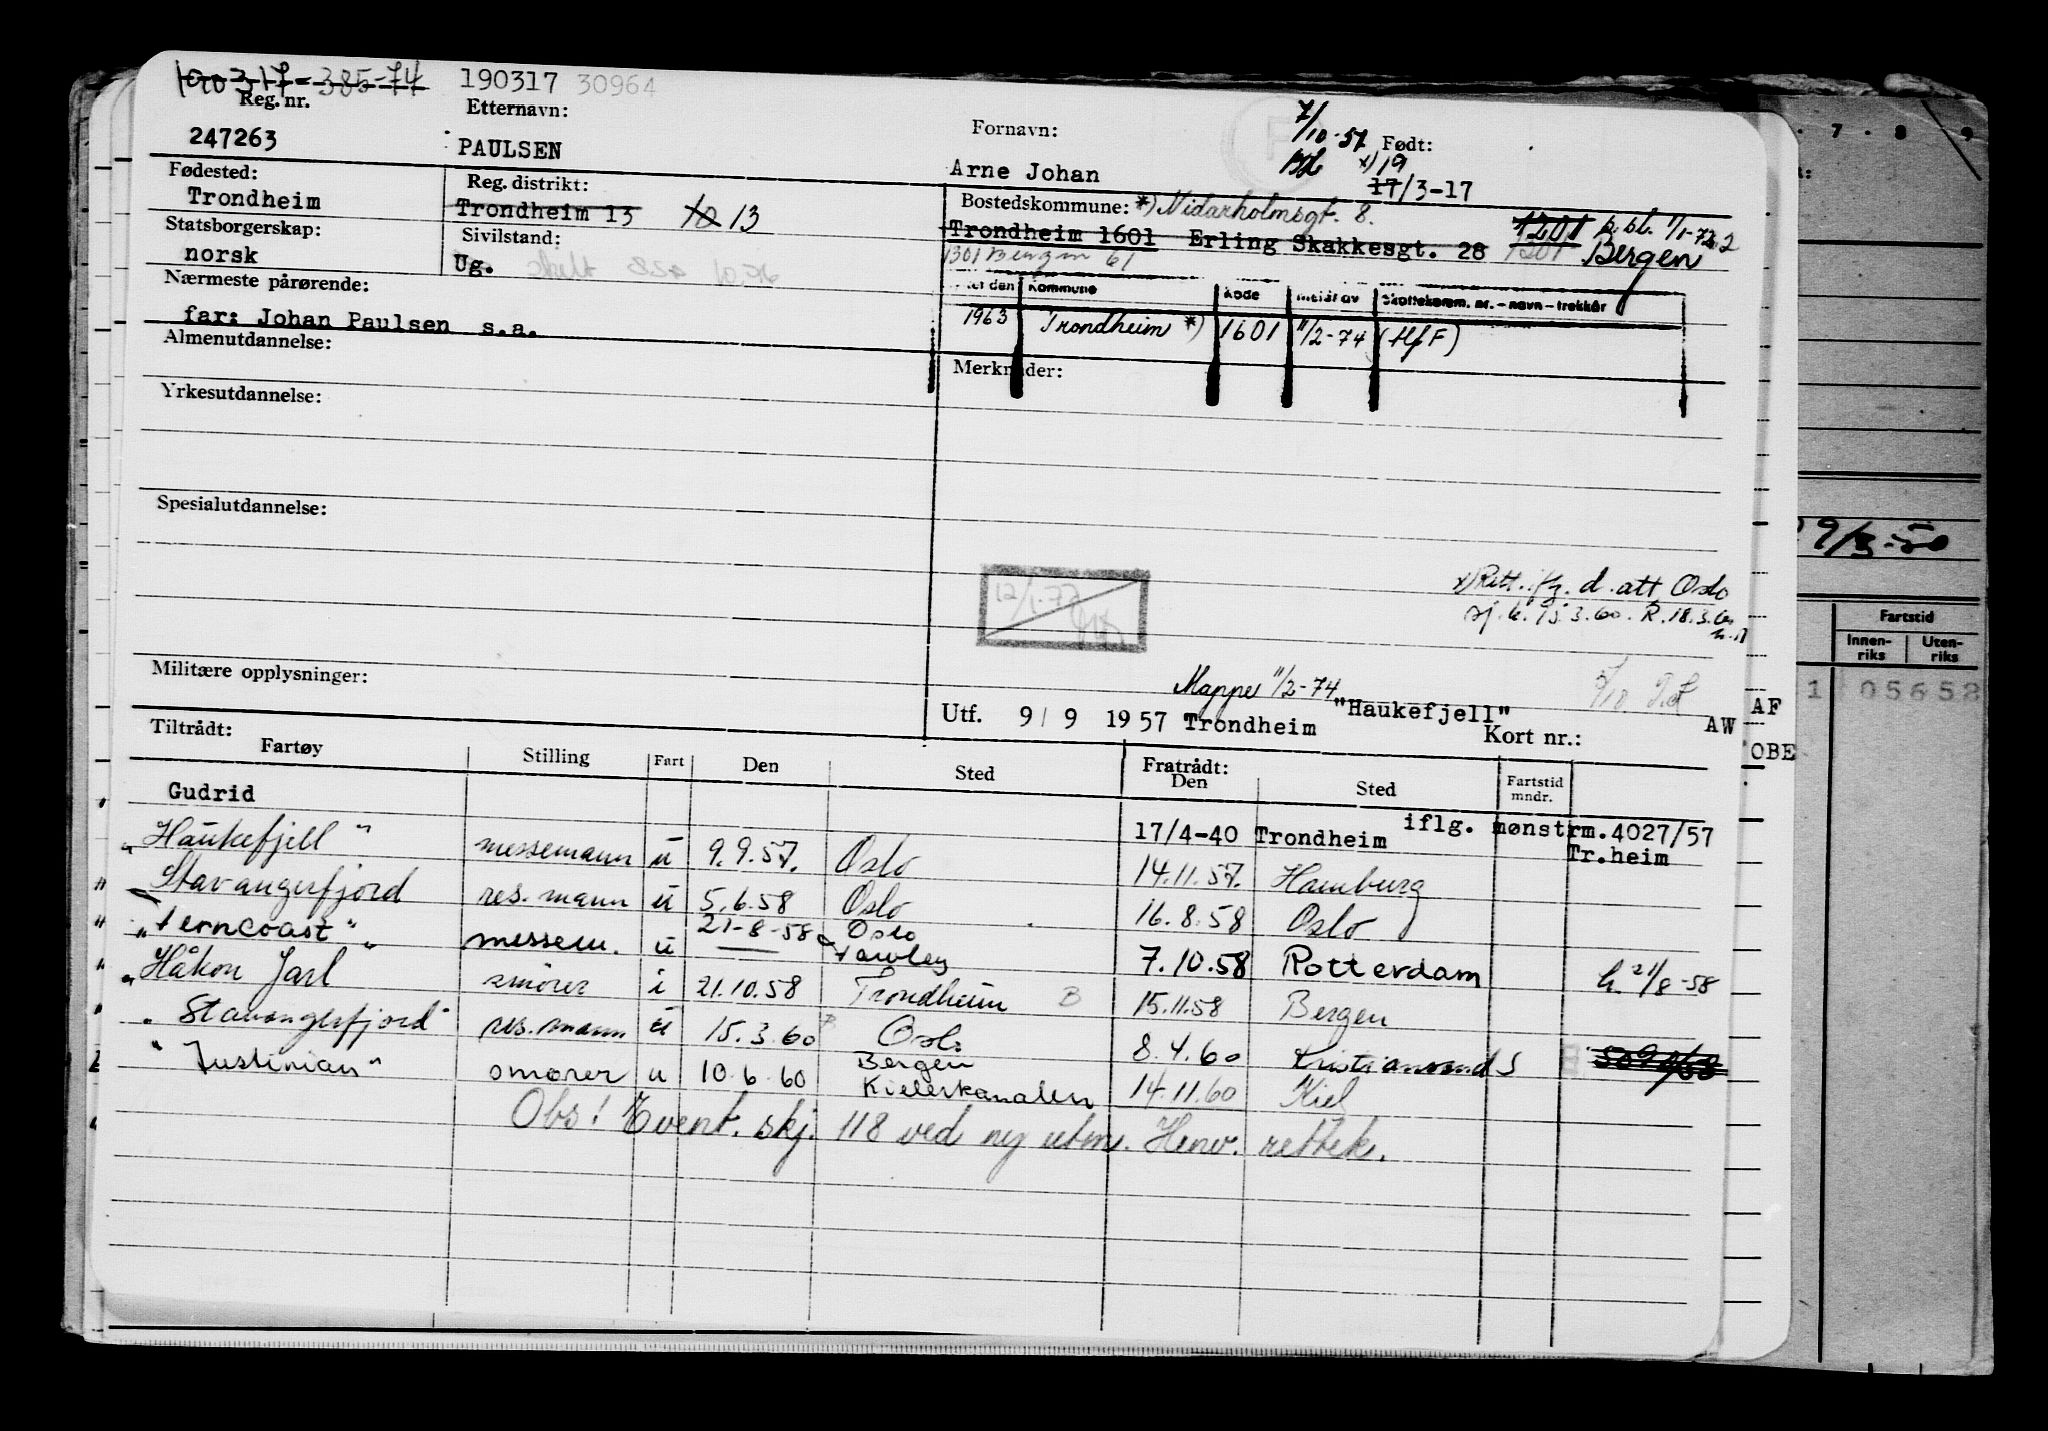 190317-385-74 190317 30964
Reg. nr. Etternavn: Fornavn: 7/10-57 Født:
247263 PAULSEN Arne Johan x) 19
17/3-17
Fødested: Reg. distrikt: Bostedskommune: *) Nidarholmsgt. 8.
Trondheim Trondheim 13 10 13 Trondheim 1601 Erling Skakkesgt. 28 1201 p. bl. 1/1-72
Statsborgerskap: Sivilstand: 1301 Bergen 61 1201 Bergen
norsk Ug. skilt
Nærmeste pårørende: Kommune Kode
far: Johan Paulsen s.a. 1963 Trondheim *) 1601 11/2-74 (HfF)
Almenutdannelse: Merknader:
Yrkesutdannelse:
Spesialutdannelse:
12/1-72
x) Rett. i fg. d. att Oslo
sj. k. 15.3.60. R. 18.3.60
Militære opplysninger: Mappe 11/2-74
Utf. 9/ 9 1957 Trondheim "Haukefjell" Kort nr.: AW
Tiltrådt: Fratrådt:
Fartøy Stilling Fart Den Sted Den Sted Fartstid mndr.
Gudrid 17/4-40 Trondheim iflg. mønstrm.4027/57
Tr.heim
"Haukefjell" messemann u 9.9.57. Oslo 14.11.57. Hamburg
Stavangerfjord res. mann u 5.6.58 Oslo 16.8.58 Oslo
"Ferncoast" messem. u 21-8-58 Oslo 7.10.58 Rotterdam h. 21/8-58
"Håkon Jarl" smører i 21.10.58 Trondheim B 15.11.58 Bergen
"Stavangerfjord" res. mann u 15.3.60 Oslo 8.4.60 Kristiansand S
"Justinian" smører u 10.6.60 Bergen
Kielerkanalen 14.11.60 Kiel
Obs! Event. skj. 118 ved ny utm. Henv. rettek.
7 8 9
9/3-50
Fartstid
Innen-riks Uten-riks
1 05652
AF
OBE